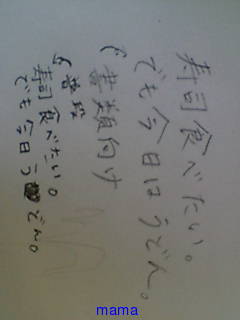 寿司食べたい。
でも今日はうどん。
書類向け
普段
寿司食べたい。
でも今日うどん。
mama